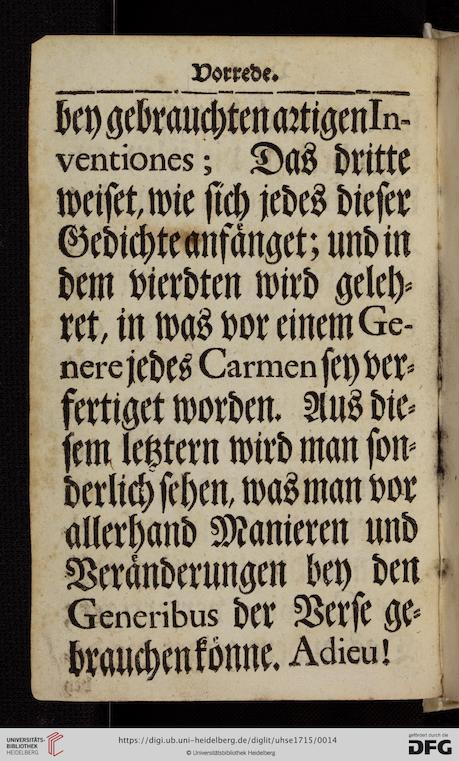 Vorrede.
bey gebrauchten artigen In-
ventiones; Das dritte
weiset, wie sich jedes dieser
Gedichte anfänget; und in
dem vierdten wird geleh-
ret, in was vor einem Ge-
nere jedes Carmen sey ver-
fertiget worden. Aus die-
sem letztern wird man son-
derlich sehen, was man vor
allerhand Manieren und
Veränderungen bey den
Generibus der Verse ge-
brauchen könne. Adieu!
UNIVERSITÄTS-
BIBLIOTHEK
HEIDELBERG
https://digi.ub.uni-heidelberg.de/diglit/uhse1715/0014
© Universitätsbibliothek Heidelberg
gefördert durch die
DFG